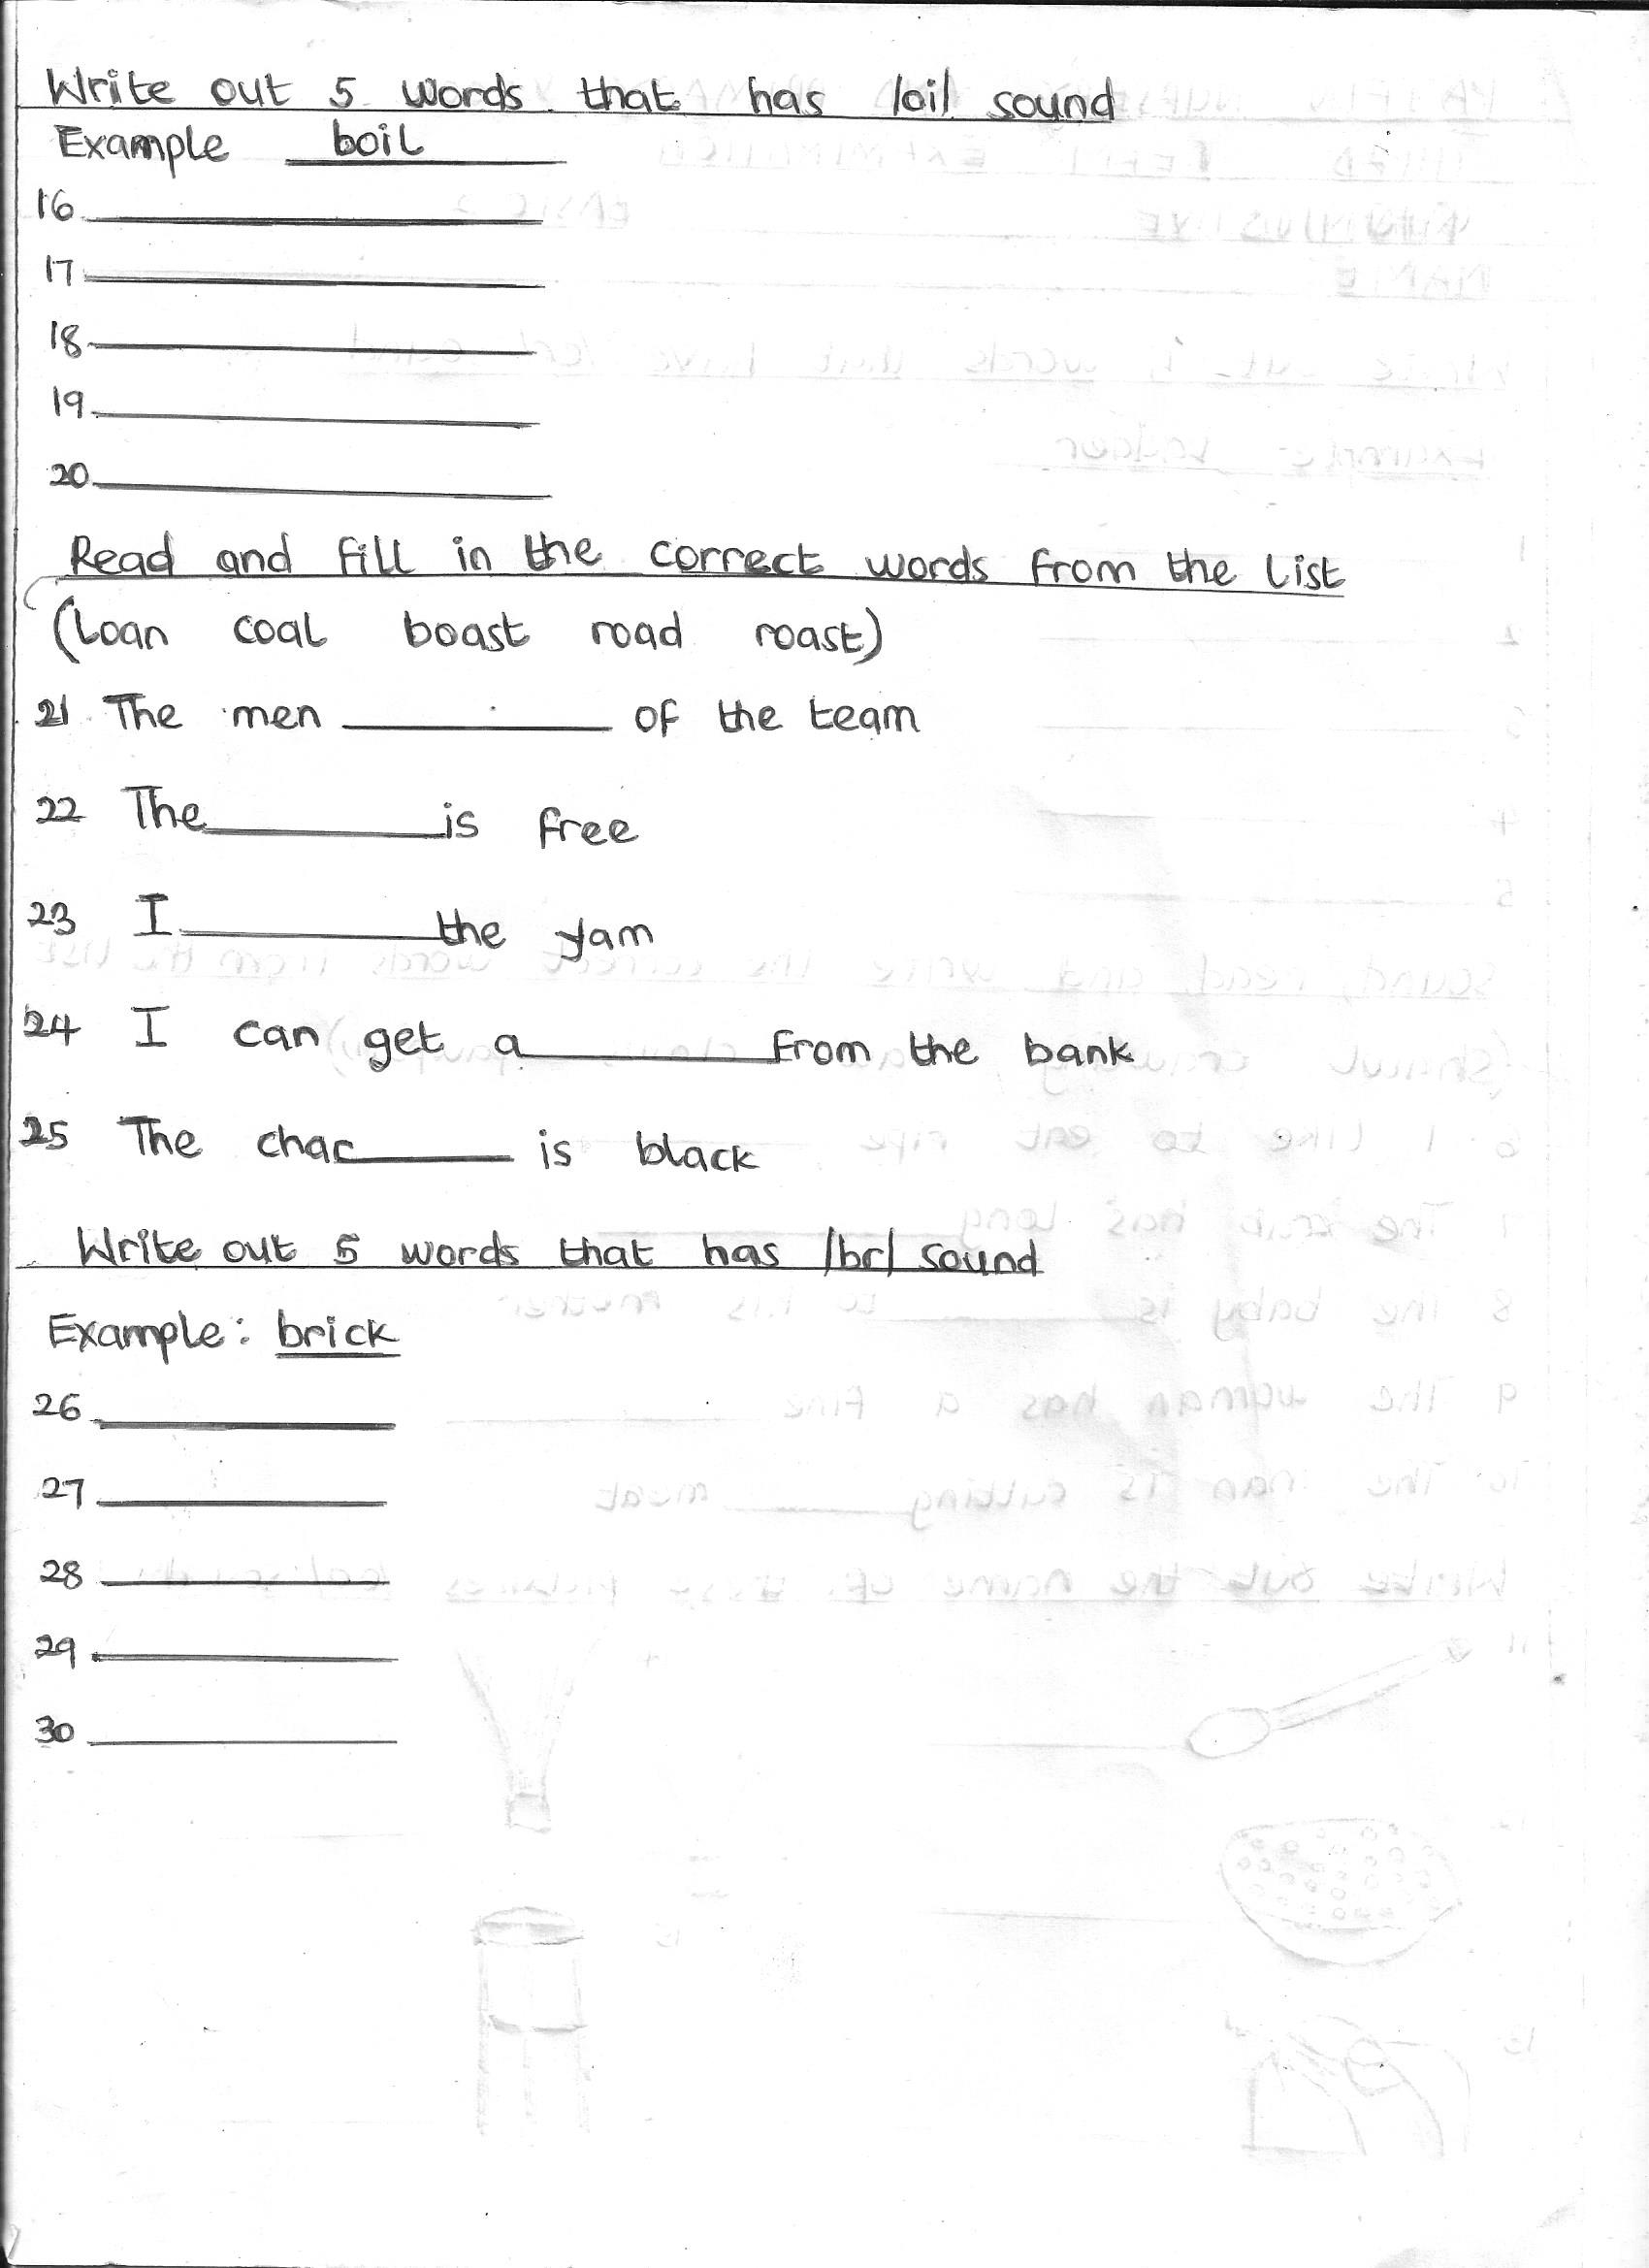 Write out 5 words that has /oi/ sound
Example boil
16
17
18
19
20
Read and fill in the correct words from the list
(Loan coal boast road roast)
21 The men ________ of the team
22 The ________ is free
23 I ________ the yam
24 I can get a ________ from the bank
25 The charc________ is black
Write out 5 words that has /br/ sound
Example: brick
26
27
28
29
30